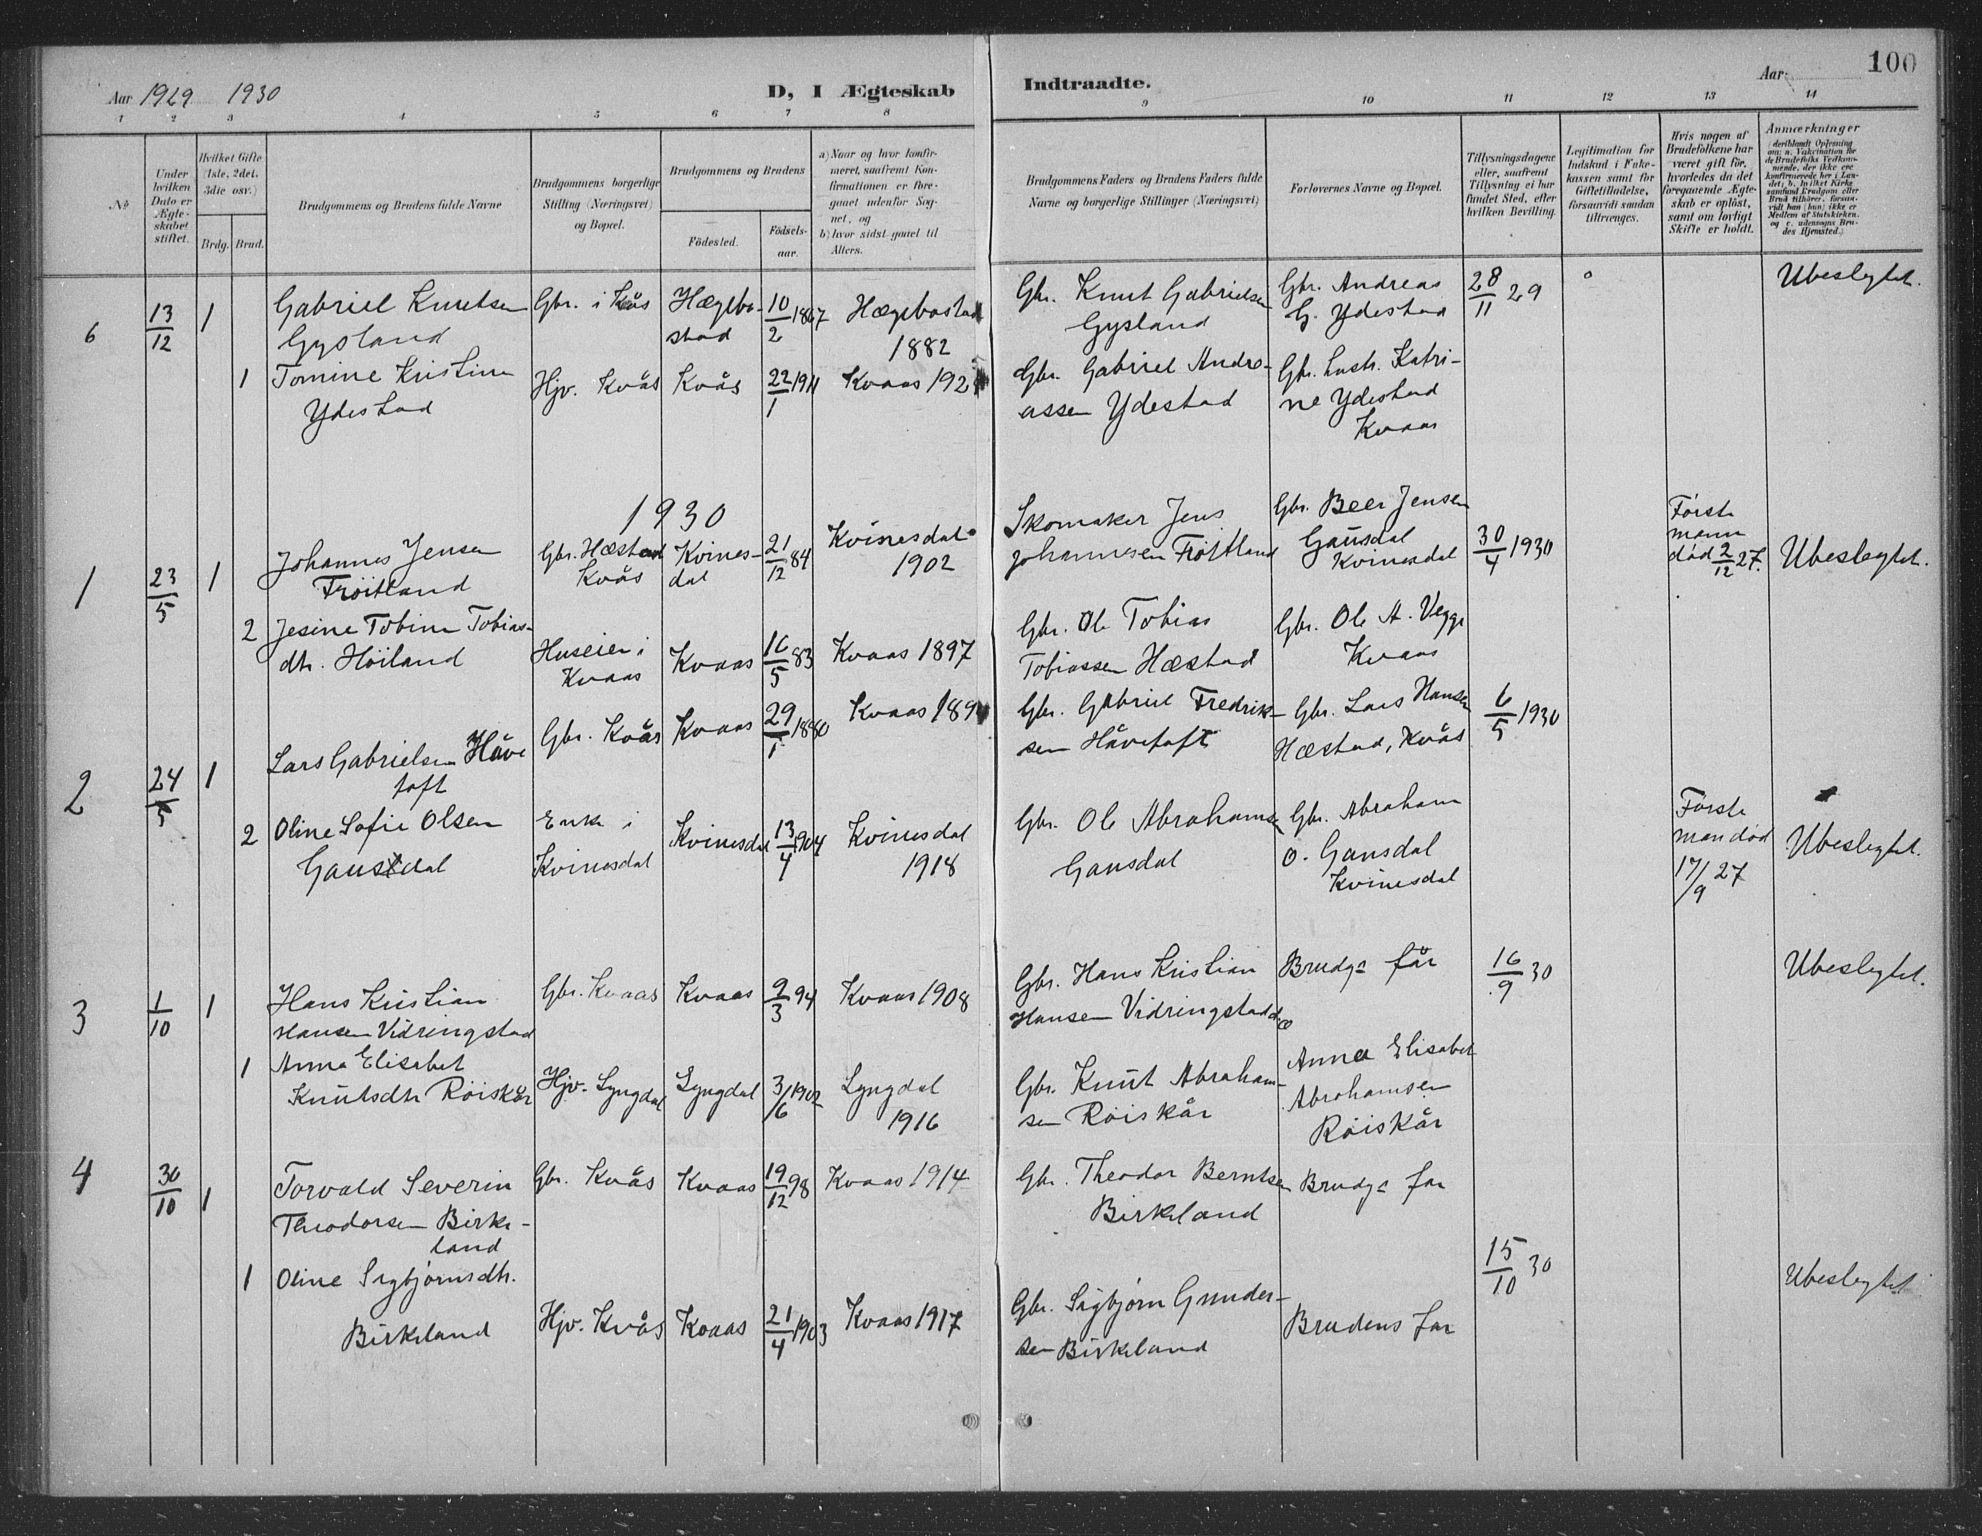 Aar 1929 1930
D, I Ægteskab Indtraadte.
Aar 100
1 2 3 4 5 6 7 8 9 10 11 12 13 14
No
Under hvilken Dato er Ægteskabet stiftet.
Hvilket Gifte (1ste, 2det, 3die osv.)
Brdg. Brud.
Brudgommens og Brudens fulde Navne
Brudgommens borgerlige Stilling (Næringsvei) og Bopæl.
Brudgommens og Brudens
Födested.
Födsels-aar.
a) Naar og hvor konfirmeret, saafremt Konfirmationen er foregaaet udenfor Sognet, og
b) hvor sidst gaaet til Alters.
Brudgommens Faders og Brudens Faders fulde Navne og borgerlige Stillinger (Næringsvei)
Forlovernes Navne og Bopæl.
Tillysningsdagene eller, saafremt Tillysning ei har fundet Sted, efter hvilken Bevilling.
Legitimation for Indskud i Enkekassen samt for Giftetilladelse, forsaavidt saadan tiltrænges.
Hvis nogen af Brudefolkene har været gift för, hvorledes da det foregaaende Ægteskab er oplöst, samt om lovligt Skifte er holdt.
Anmærkninger
6 13/12 1 Gabriel Knutsen Gysland
Gbr. i Kvås
Hægebostad
10/2 1867
Hægebostad 1882
Gbr. Knut Gabrielsen Gysland
Gbr. Andreas G. Ydestad
28/11 29
Ubeslegtet.
1 Tomine Kristine Ydestad
Hjv. Kvås
Kvås
22/1 1911
Kvaas 192
Gbr. Gabriel Andreassen Ydestad
Gbr. hustr. Katrine Ydestad Kvaas
1930
1 23/5 1 Johannes Jensen Tröitland
Gbr. Hæstad Kvås
Kvinesdal
21/12 84
Kvinesdal 1902
Skomaker Jens Johannesen Tröitland
Gbr. Beer Jensen Gausdal Kvinesdal
30/4 1930
Første mann död 2/12 27.
Ubeslegtet.
2 Jesine Tobine Tobiasdtr. Höiland
Huseier i Kvaas
Kvaas
16/5 83
Kvaas 1897
Gbr. Ole Tobias Tobiassen Hæstad
Gbr. Ole A. Vegge Kvaas
2 24/5 1 Lars Gabrielsen Håvetoft
Gbr. Kvås
Kvaas
29/1 1880
Kvaas 189
Gbr. Gabriel Fredriksen Håvetoft
Gbr. Lars Hansen Hæstad, Kvås
6/5 1930
2 Oline Sofie Olsen Gausdal
Enke i Kvinesdal
Kvinesdal
13/4 1904
Kvinesdal 1918
Gbr. Ole Abrahamsen Gausdal
Gbr. Abraham O. Gausdal Kvinesdal
Første man död 17/9 27
Ubeslegtet.
3 1/10 1 Hans Kristian Hansen Vidringstad
Gbr. Kvaas
Kvaas
9/3 94
Kvaas 1908
Gbr. Hans Kristian Hansen Vidringstad
Brudgs får
16/9 30
Ubeslegtet.
1 Anna Elisabet Knutsdtr Röiskår
Hjv. Lyngdal
Lyngdal
3/6 1902
Lyngdal 1916
Gbr. Knut Abrahamsen Röiskår
Anna Elisabet Abrahamsen Röiskår
4 30/10 1 Torvald Severin Theodorsen Birkeland
Gbr. Kvås
Kvaas
19/12 98
Kvaas 1914
Gbr. Theodor Berntsen Birkeland
Brudgs far
15/10 30
1 Oline Sigbjørnsdtr. Birkeland
Hjv. Kvås
Kvaas
21/4 1903
Kvaas 1917
Gbr. Sigbjørn Gundersen Birkeland
Brudens far
Ubeslegtet